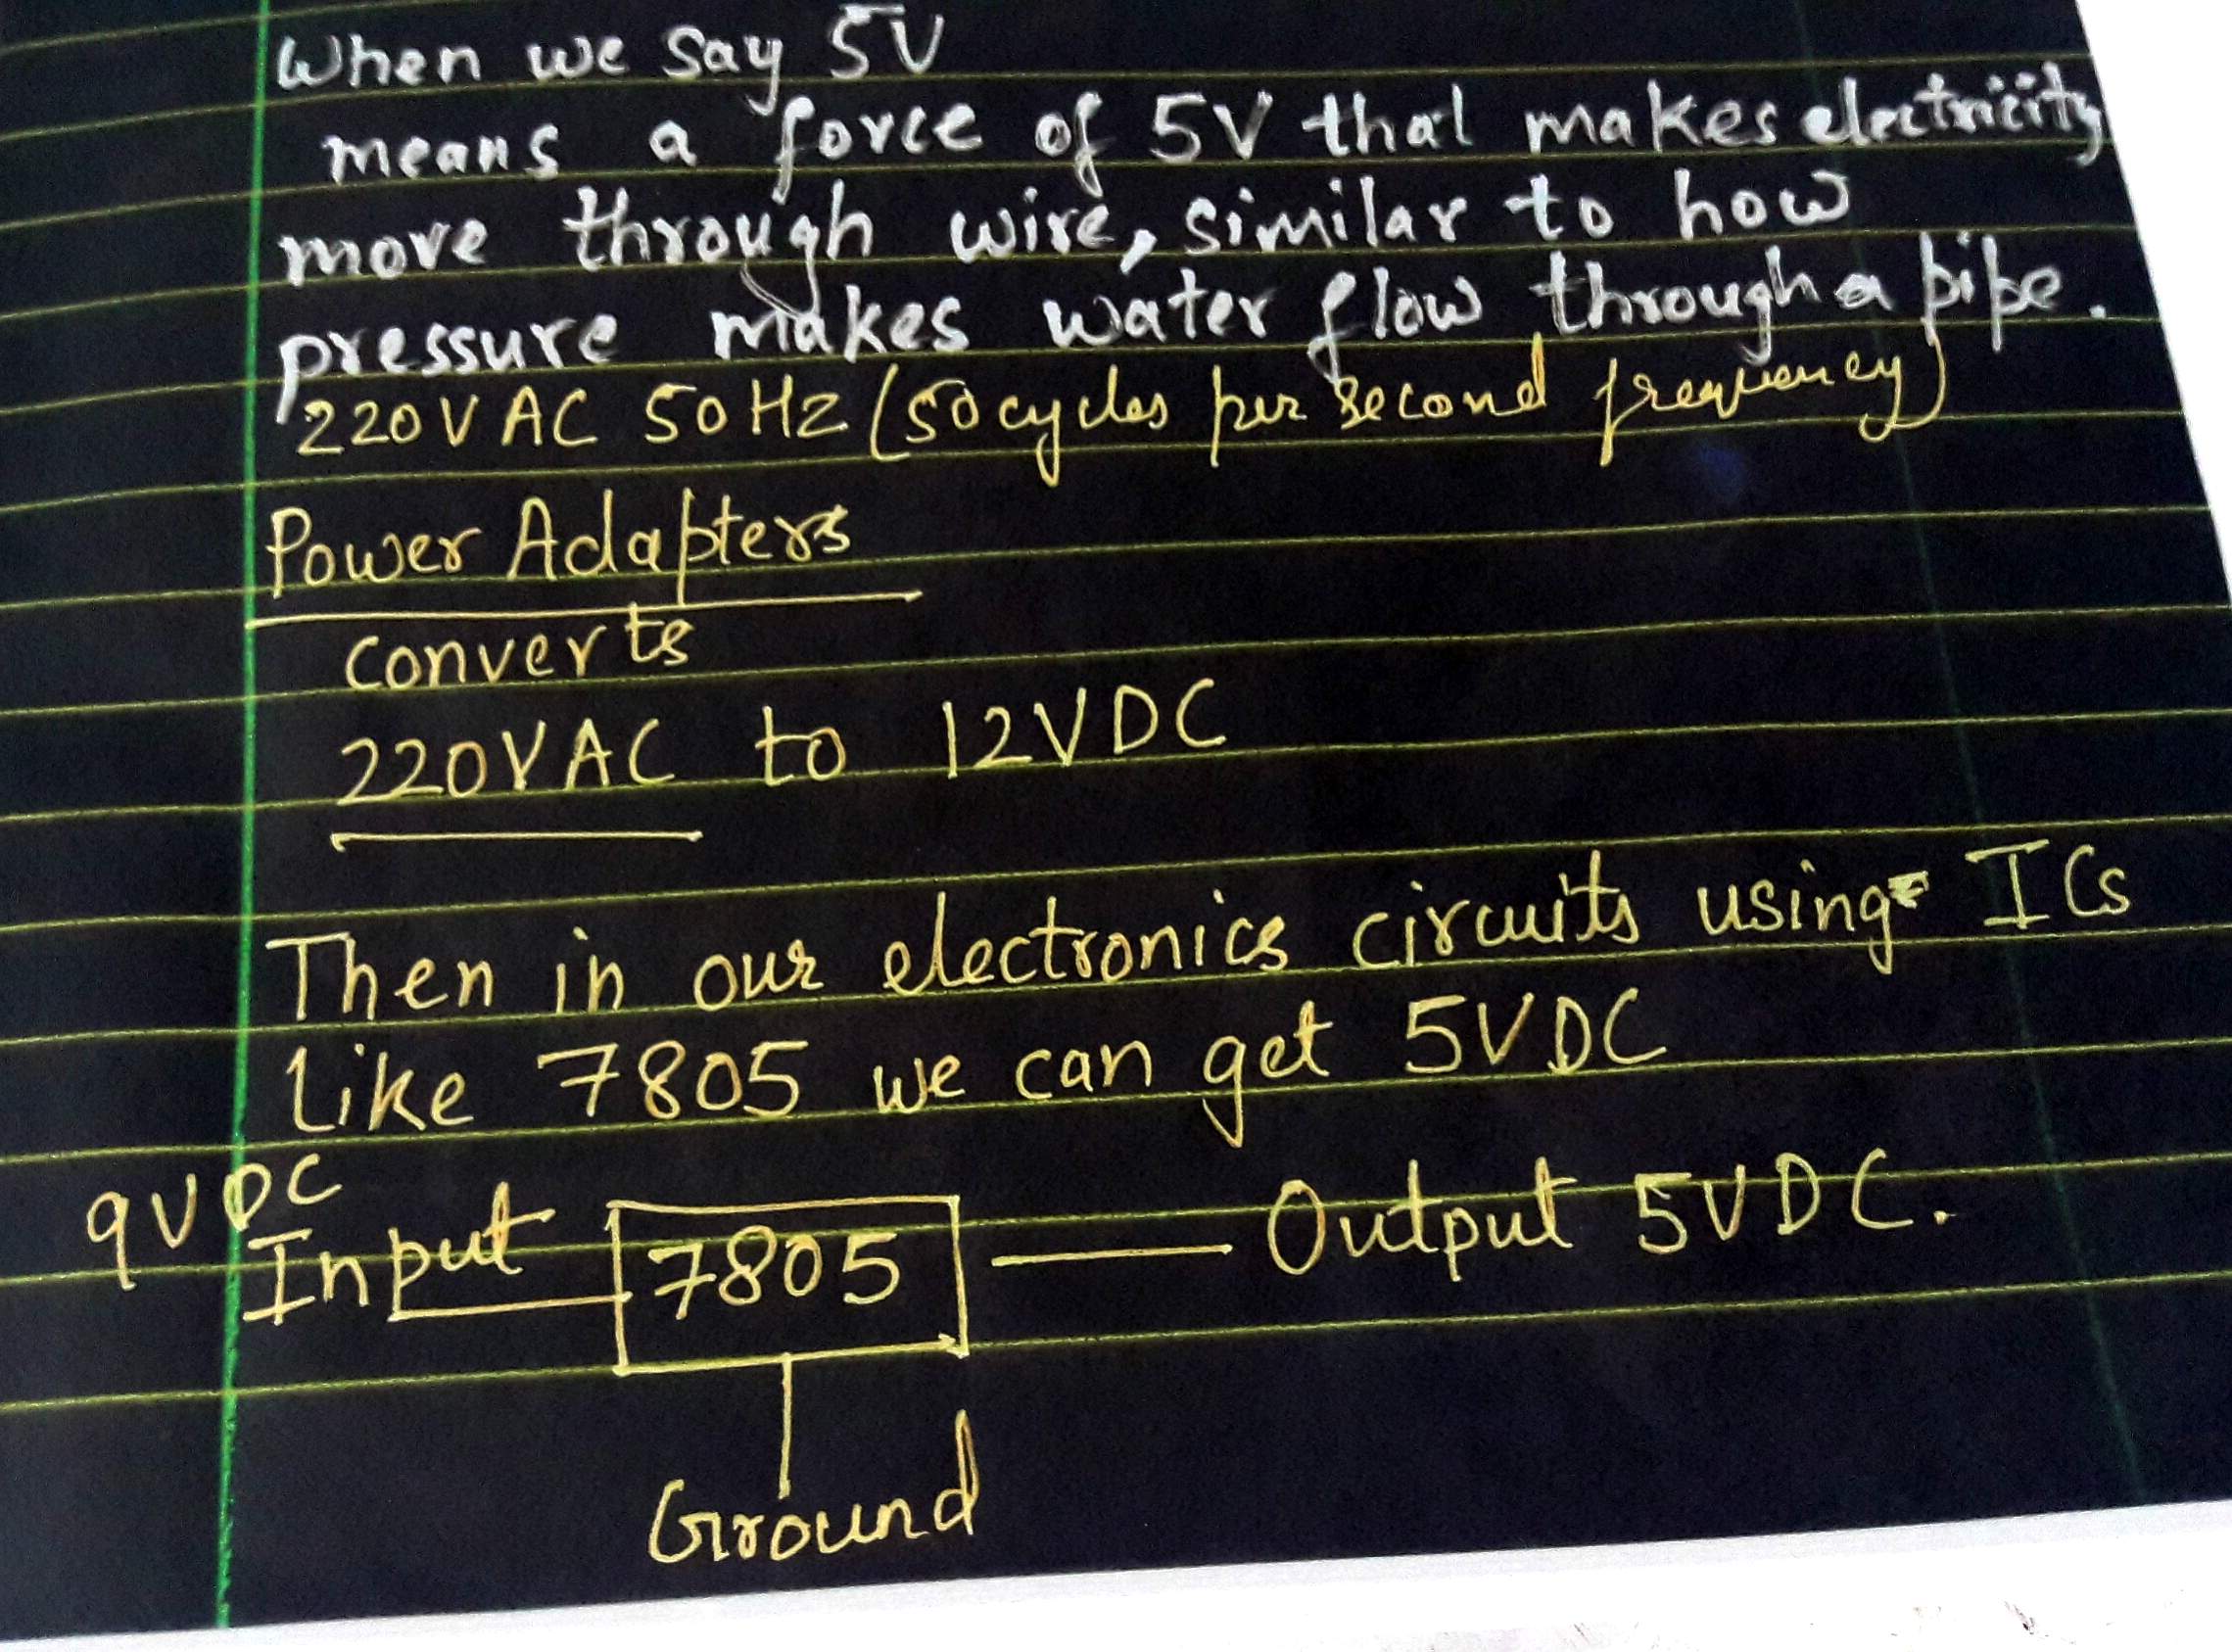 When we say 5V
means a force of 5V that makes electricity
move through wire, similar to how
pressure makes water flow through a pipe.
220V AC 50 Hz (50 cycles per second frequency)
Power Adapters
converts
220V AC to 12V DC
Then in our electronics circuits using ICs
Like 7805 we can get 5V DC
9V DC
Input 7805 Output 5V DC.
Ground